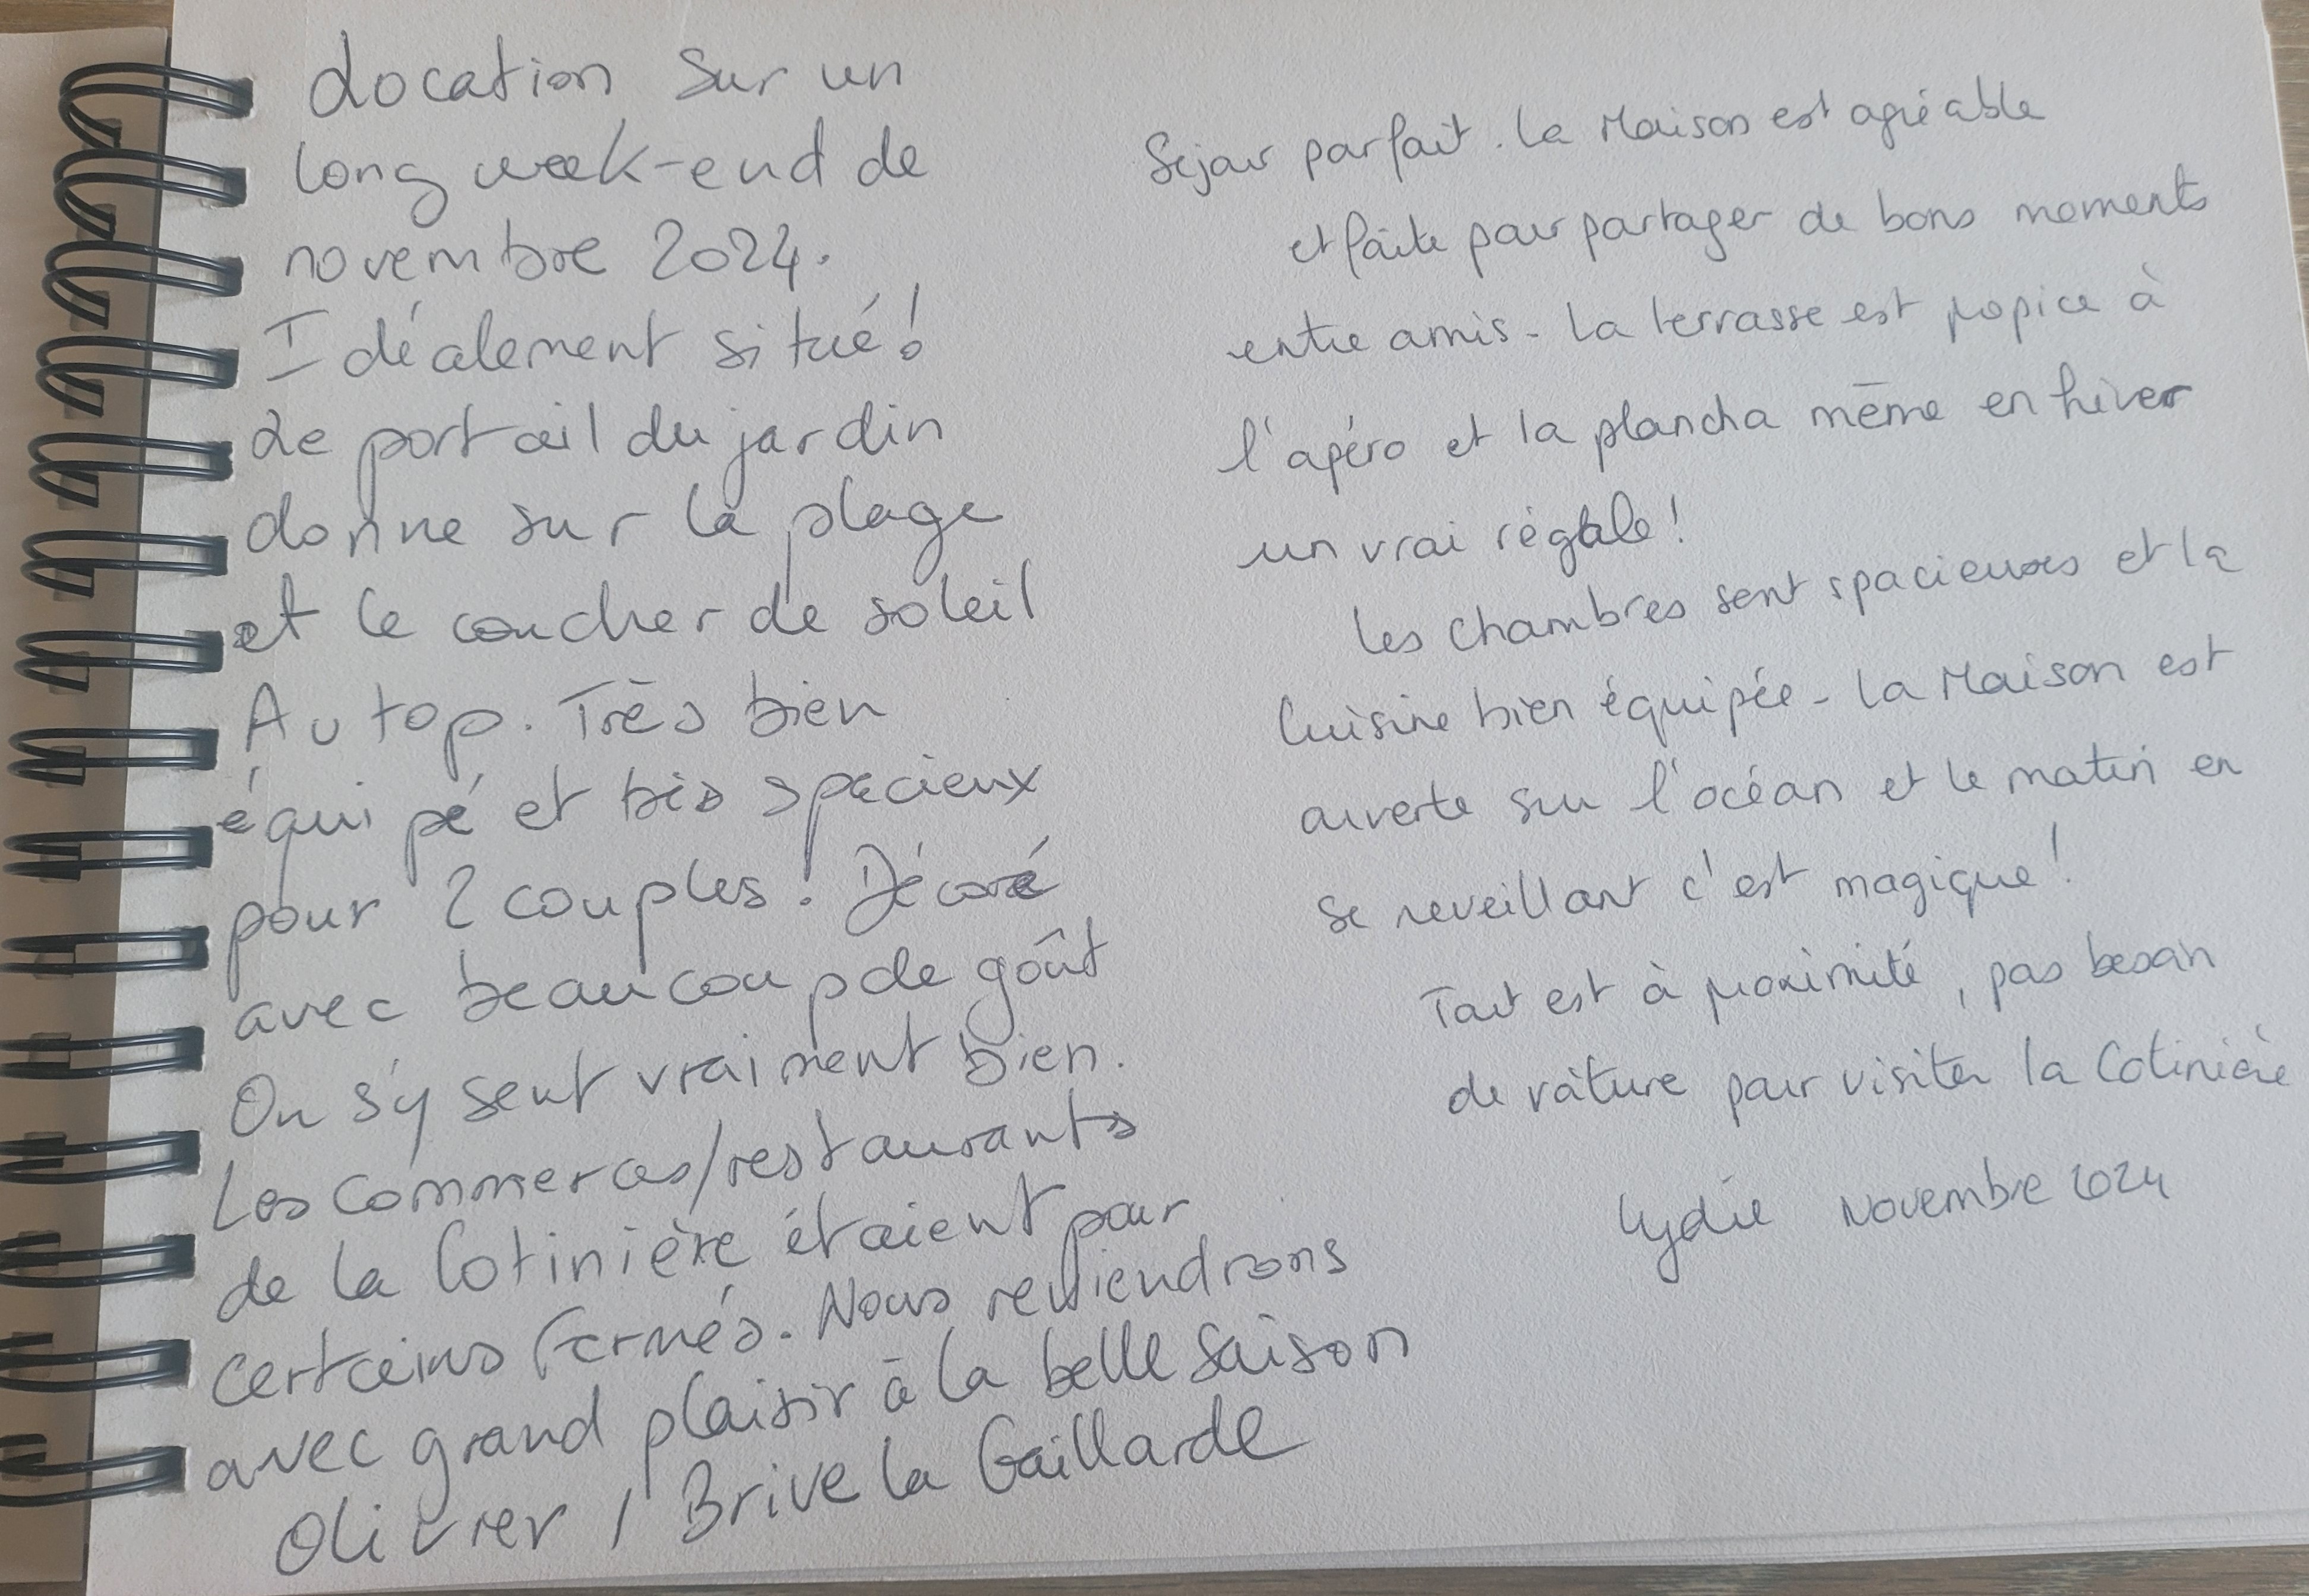 Location sur un
long week-end de
novembre 2024.
Idéalement situé!
Le portail du jardin
donne sur la plage
et le coucher de soleil
Au top. Très bien
équipé et très spacieux
pour 2 couples. Décoré
avec beaucoup de goût
On s'y sent vraiment bien.
Les Commerces/restaurants
de la Cotinière étaient pour
certains fermés. Nous reviendrons
avec grand plaisir à la belle saison
Olivier / Brive la Gaillarde
Séjour parfait. La Maison est agréable
et faite pour partager de bons moments
entre amis - La terrasse est propice à
l'apéro et la plancha même en hiver
un vrai régale!
Les Chambres sont spacieuses et la
Cuisine bien équipée - La Maison est
ouverte sur l'océan et le matin en
se reveillant c'est magique!
Tout est à proximité, pas besoin
de voiture pour visiter la Cotinière
Lydie Novembre 2024